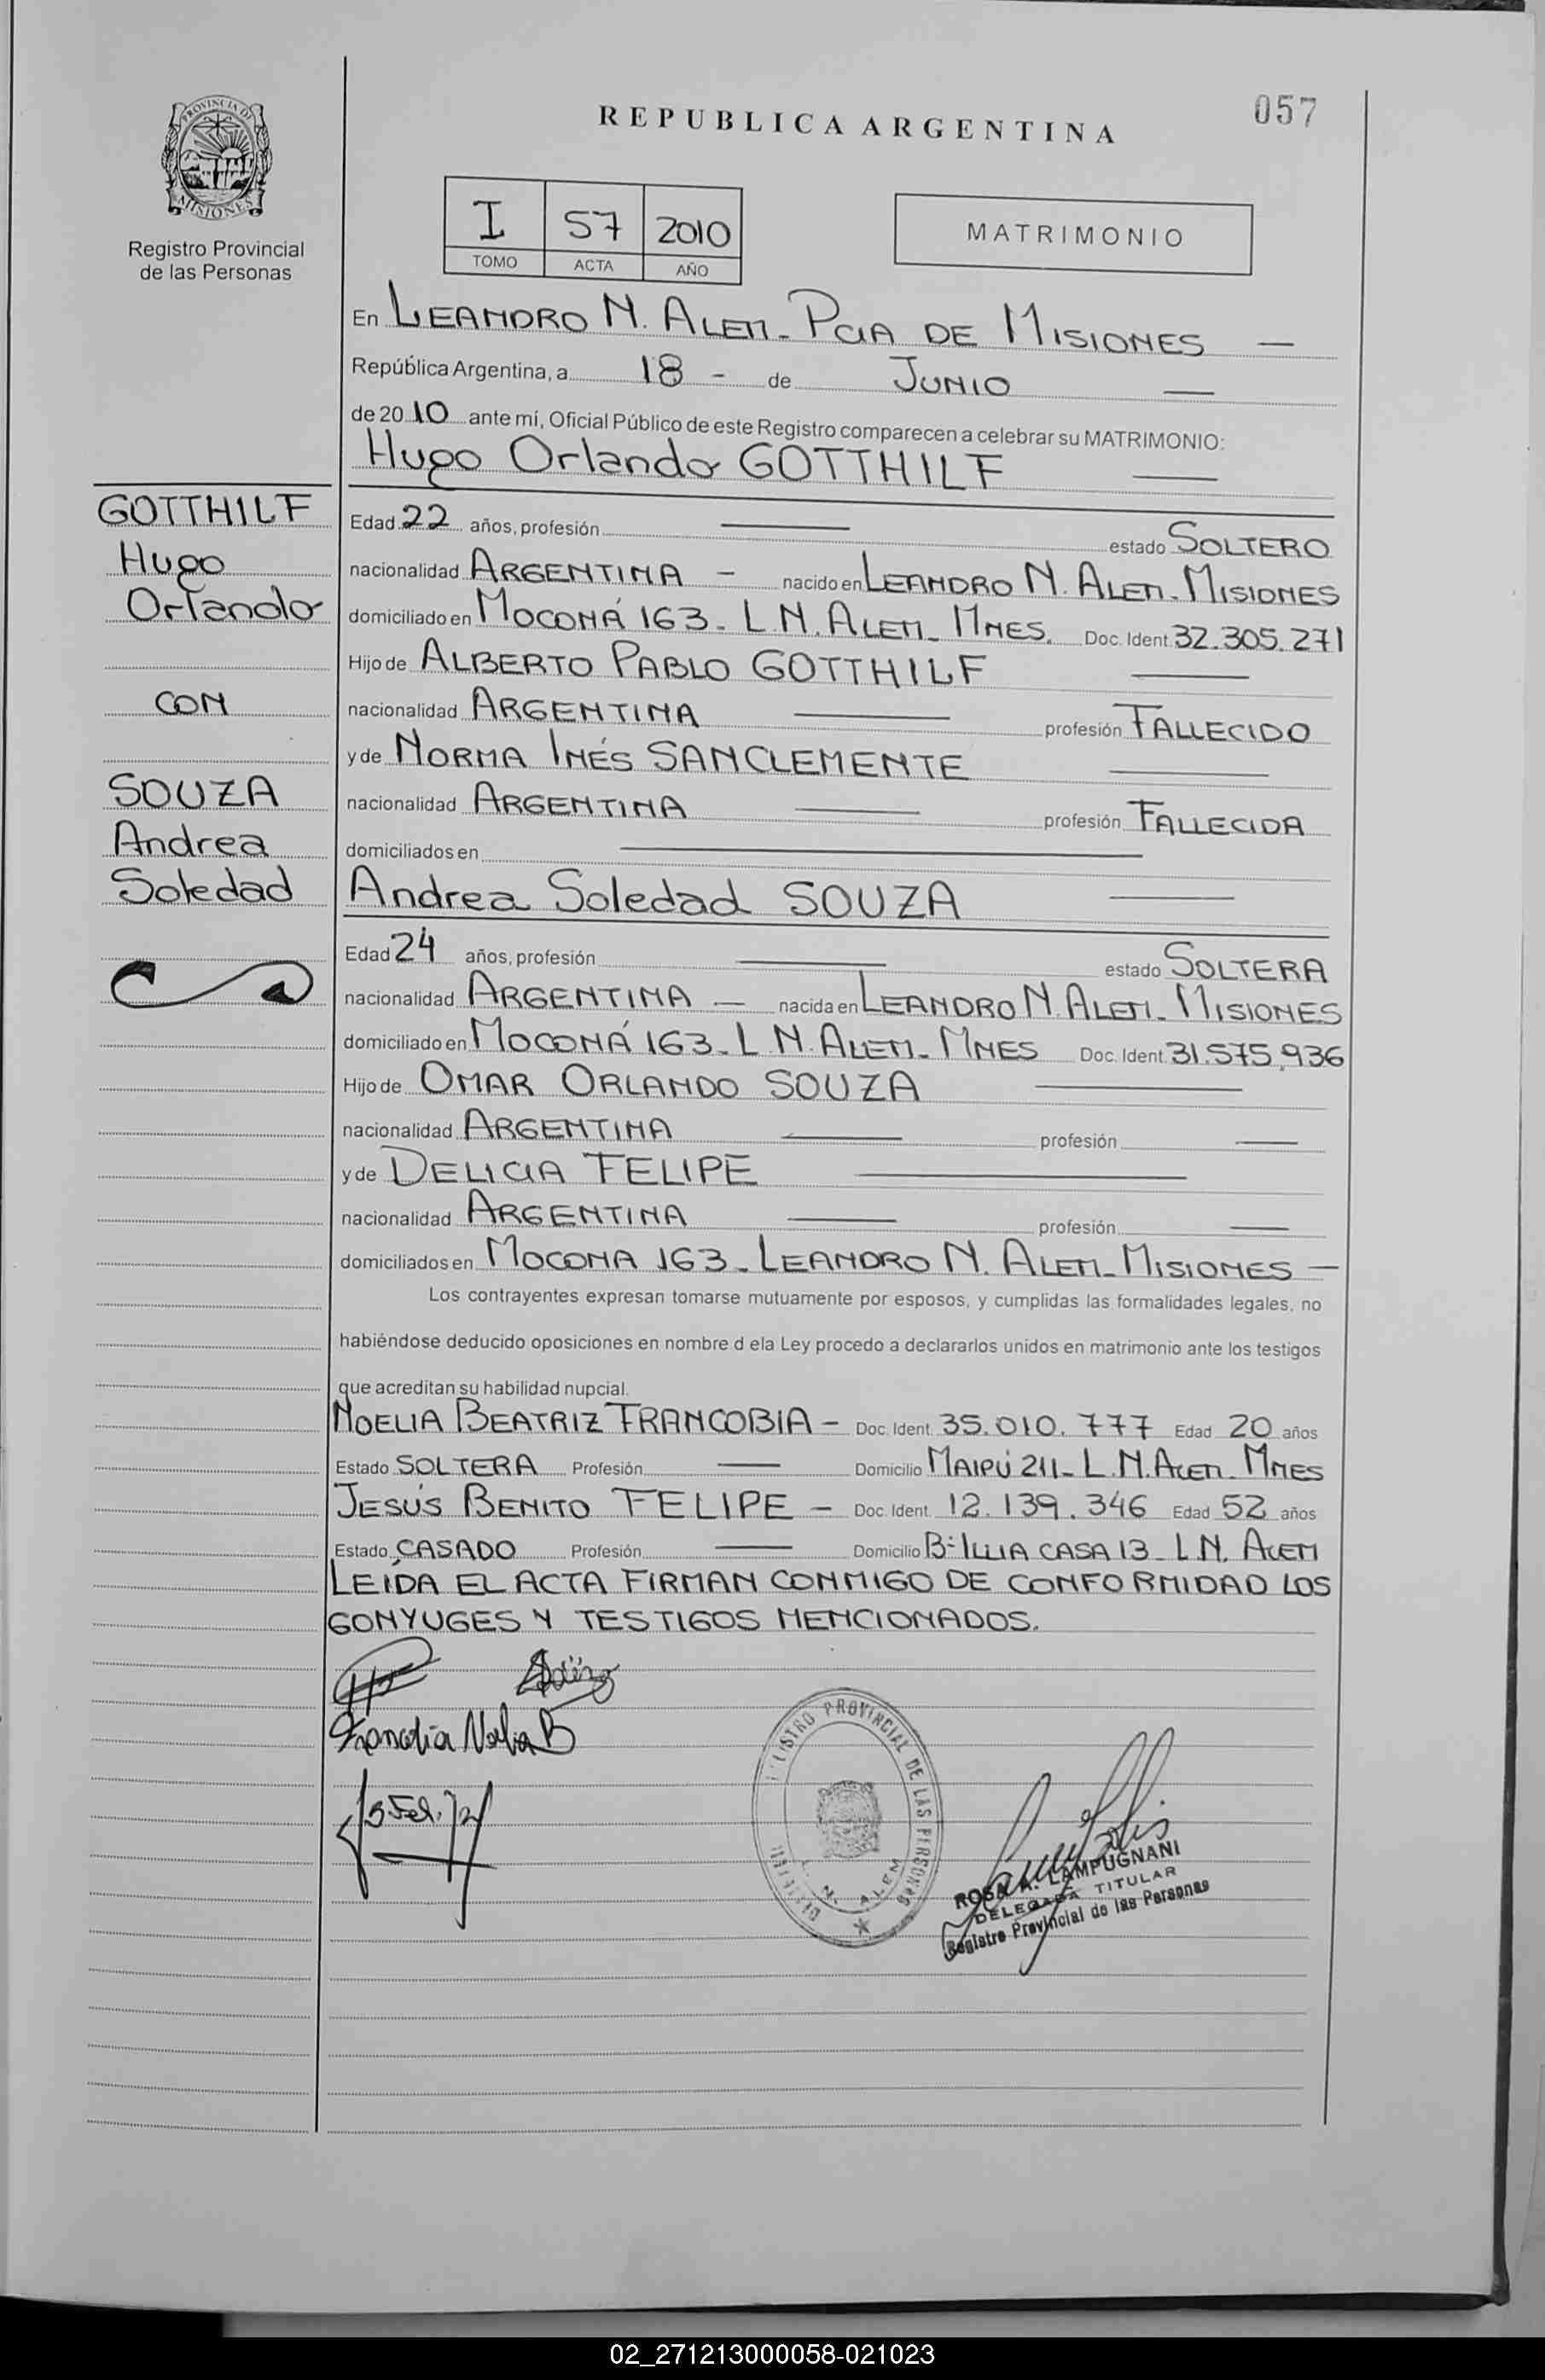 PROVINCIA DE
MISIONES
Registro Provincial
de las Personas
REPUBLICA ARGENTINA
057
I 57 2010
TOMO ACTA AÑO
MATRIMONIO
En LEANDRO N. ALEM - PCIA DE MISIONES —
República Argentina, a 18 - de JUNIO —
de 2010 ante mí, Oficial Público de este Registro comparecen a celebrar su MATRIMONIO:
Hugo Orlando GOTTHILF —
GOTTHILF
Hugo
Orlando
CON
SOUZA
Andrea
Soledad
Edad 22 años, profesión — estado SOLTERO
nacionalidad ARGENTINA - nacido en LEANDRO N. ALEM - MISIONES
domiciliado en MOCONÁ 163 - L.N. ALEM - MNES. Doc. Ident. 32.305.271
Hijo de ALBERTO PABLO GOTTHILF —
nacionalidad ARGENTINA — profesión FALLECIDO
y de NORMA INÉS SANCLEMENTE —
nacionalidad ARGENTINA — profesión FALLECIDA
domiciliados en —
Andrea Soledad SOUZA —
Edad 24 años, profesión — estado SOLTERA
nacionalidad ARGENTINA — nacida en LEANDRO N. ALEM - MISIONES
domiciliado en MOCONÁ 163 - L N. ALEM - MNES Doc. Ident. 31.575.936
Hijo de OMAR ORLANDO SOUZA —
nacionalidad ARGENTINA — profesión —
y de DELICIA FELIPE —
nacionalidad ARGENTINA — profesión —
domiciliados en MOCONA 163 - LEANDRO N. ALEM - MISIONES —
Los contrayentes expresan tomarse mutuamente por esposos, y cumplidas las formalidades legales, no
habiéndose deducido oposiciones en nombre d ela Ley procedo a declararlos unidos en matrimonio ante los testigos
que acreditan su habilidad nupcial.
NOELIA BEATRIZ FRANCOBIA - Doc. Ident. 35.010.777 Edad 20 años
Estado SOLTERA Profesión — Domicilio MAIPÚ 211 - L.N. ALEM - MNES
JESÚS BENITO FELIPE - Doc. Ident. 12.139.346 Edad 52 años
Estado CASADO Profesión — Domicilio Bº ILLIA CASA 13 - L.N. ALEM
LEIDA EL ACTA FIRMAN CONMIGO DE CONFORMIDAD LOS
CONYUGES Y TESTIGOS MENCIONADOS.
REGISTRO PROVINCIAL DE LAS PERSONAS
L. N. ALEM
ROSA A. LAMPUGNANI
DELEGADA TITULAR
Registro Provincial de las Personas
02_271213000058-021023